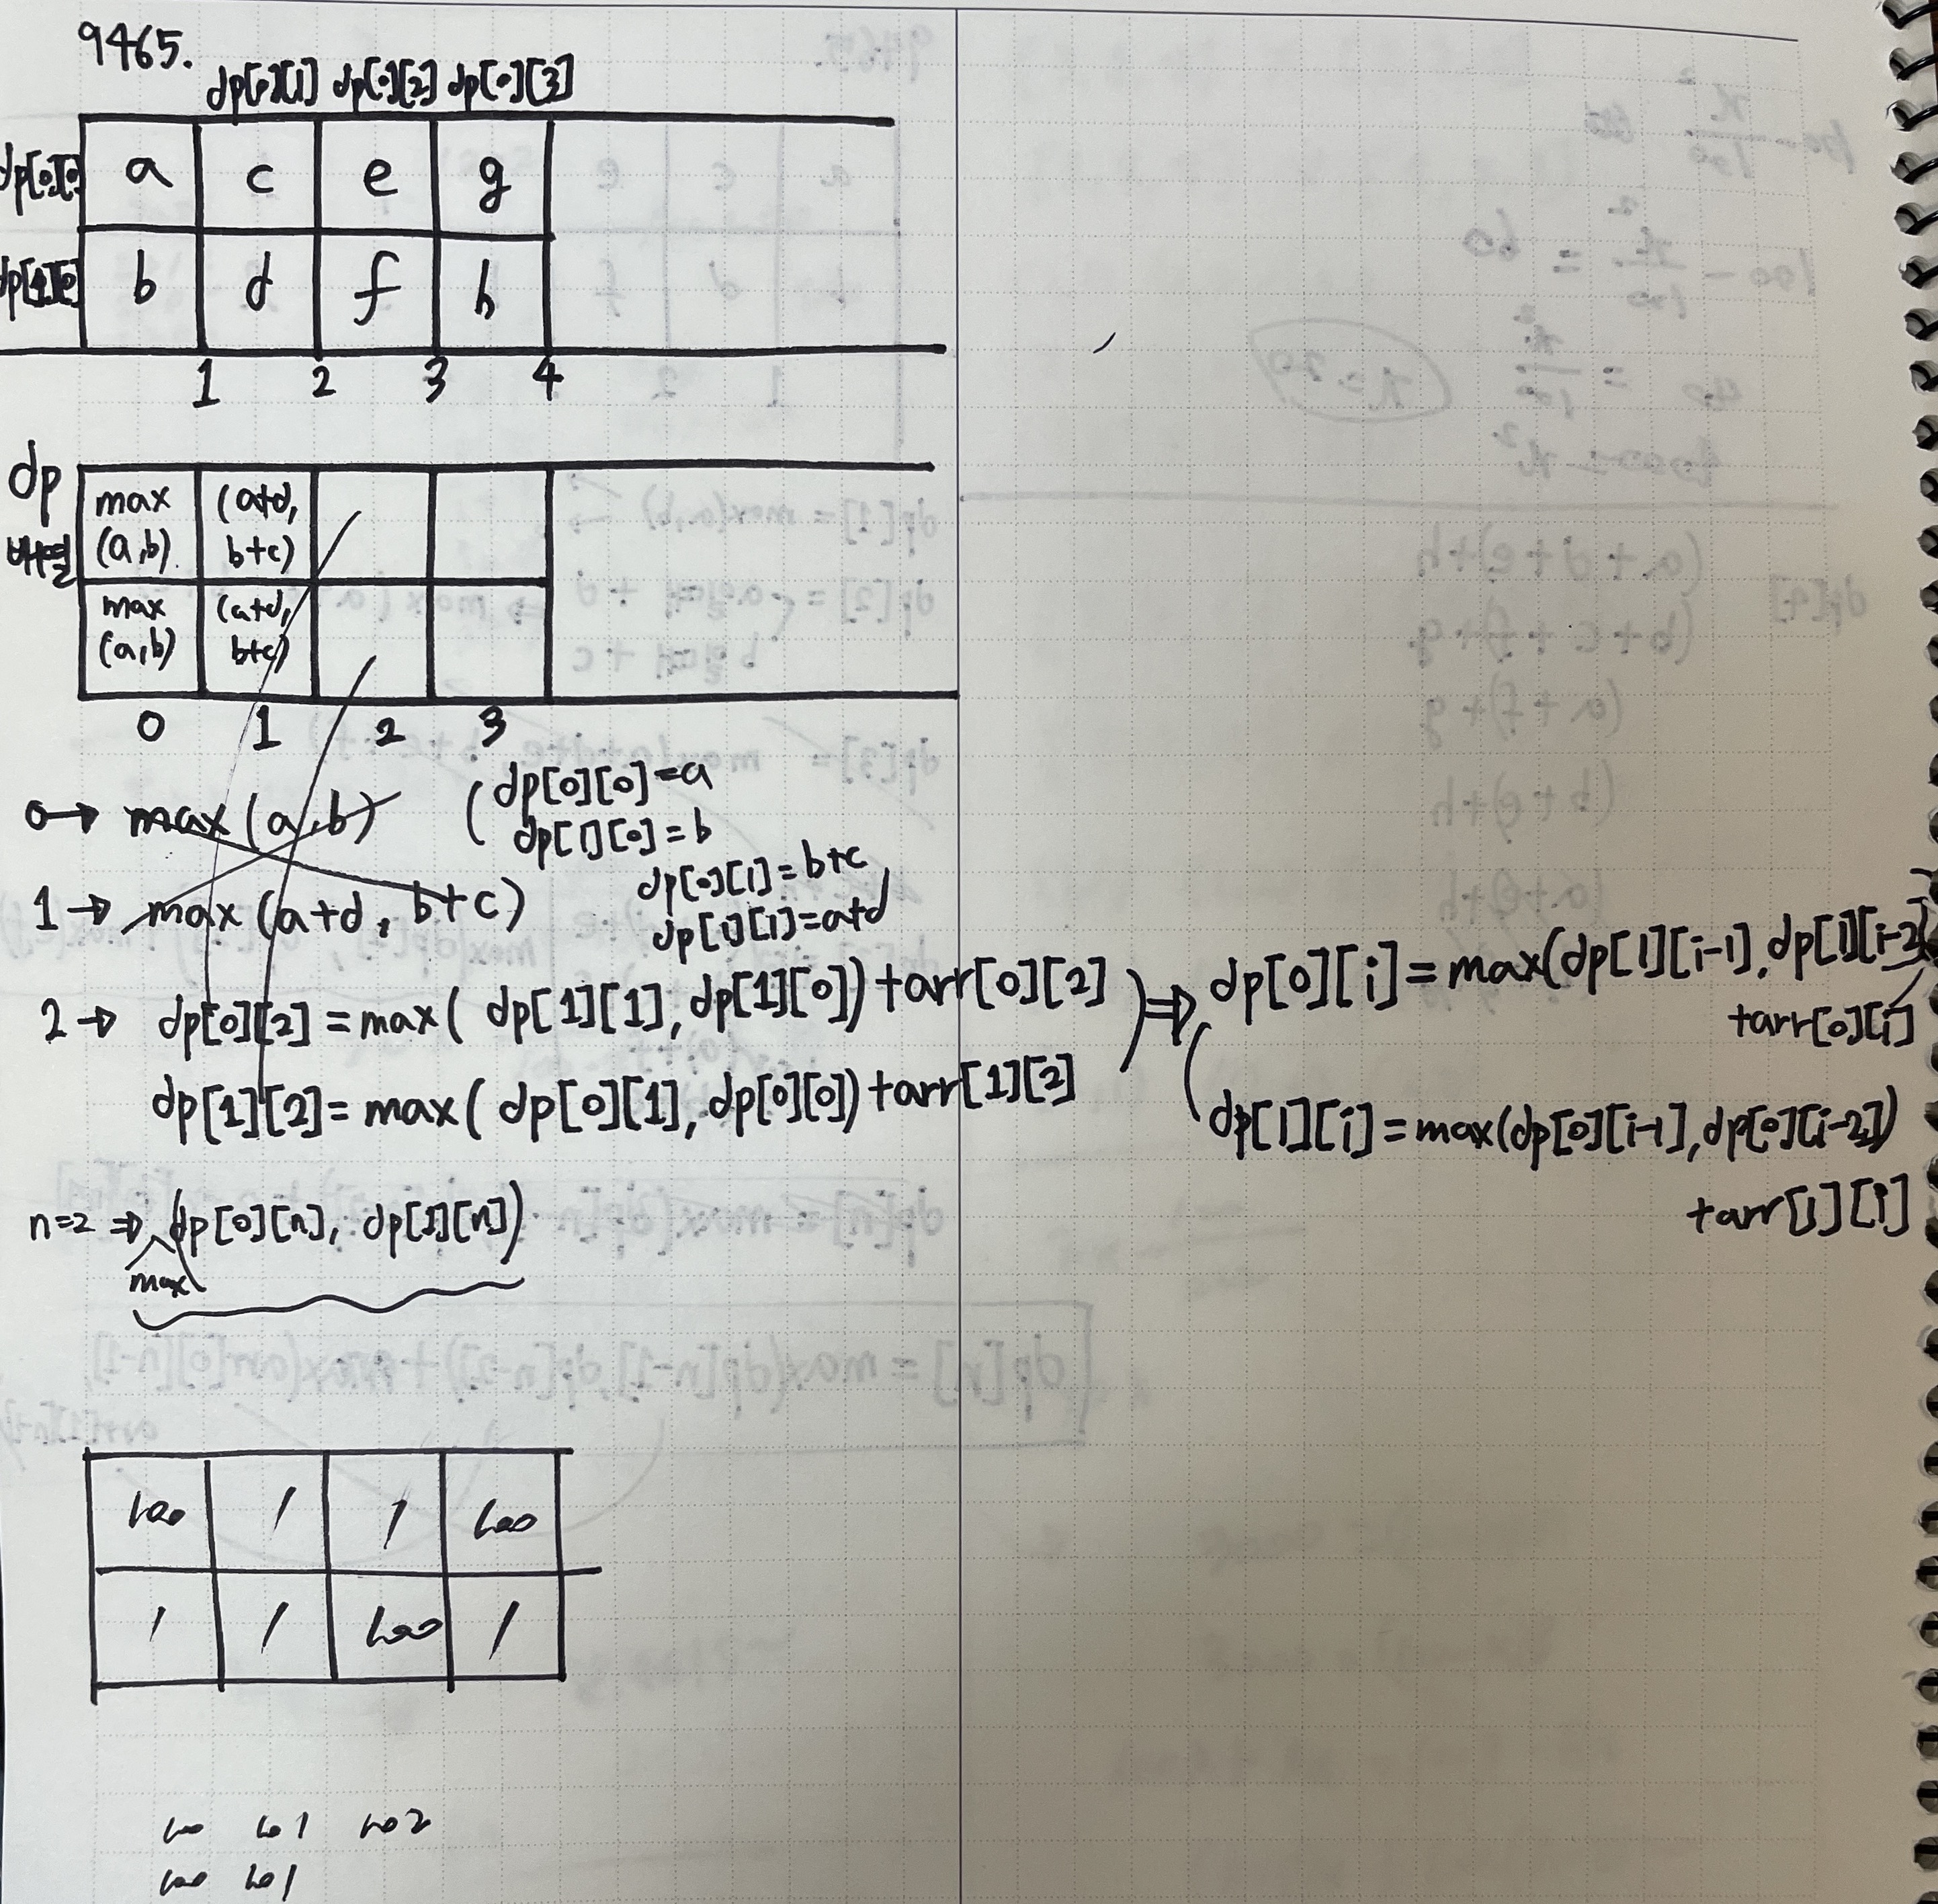 9465.
dp[0][1] dp[0][2] dp[0][3]
dp[0][0] a c e g
dp[1][0] b d f h
1 2 3 4
dp
배열
max (a,b) (a+d, b+c)
max (a,b) (a+d, b+c)
0 1 2 3
0→ max(a,b) (dp[0][0]=a
dp[1][0]=b
dp[0][1]=b+c
1→ max(a+d, b+c)
dp[1][1]=a+d
2→ dp[0][2]=max( dp[1][1], dp[1][0])+arr[0][2]
dp[1][2]=max( dp[0][1], dp[0][0])+arr[1][2]
⇒ dp[0][i]=max(dp[1][i-1], dp[1][i-2])
+arr[0][i]
dp[1][i]=max(dp[0][i-1], dp[0][i-2])
+arr[1][i]
n=2 ⇒ (dp[0][n], dp[1][n])
max
100 1 1 100
1 1 100 1
100 101 102
100 101